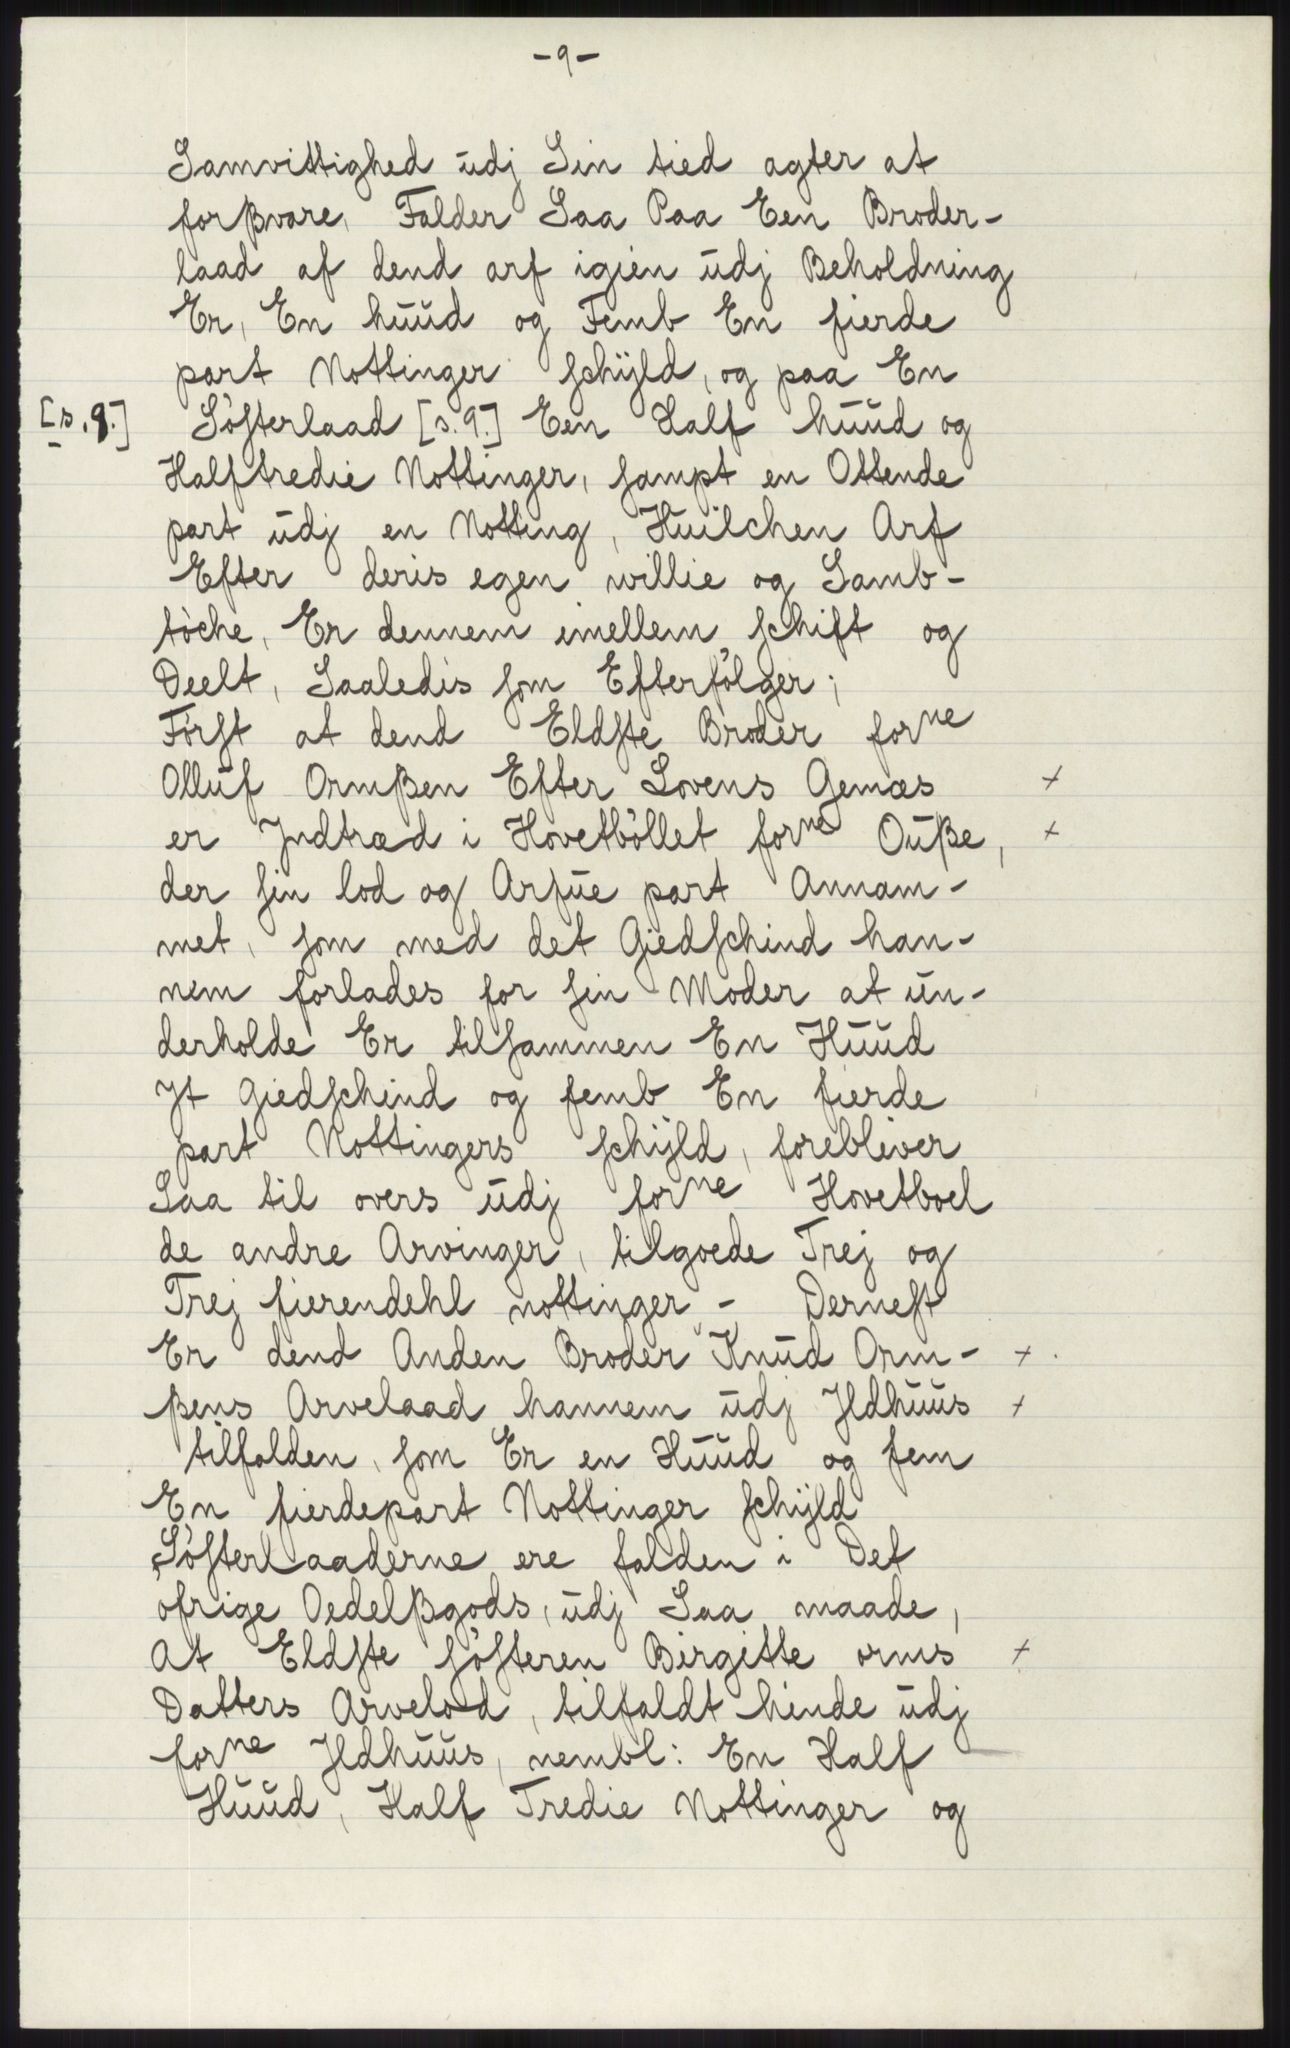 -9-
Samvittighed udj Sin tied agter at
forßvare, Falder Saa Paa Een Broder-
laad af dend arf igien udj Beholdning
Er, En huud og Femb En fierde
part Nottinger schÿld, og paa En
[s.9.] Söfterlaad [s.9.] Een Half huud og
Halftredie Nottinger, sampt en Ottende
part udj en Notting, Huilchen Arf
Efter deris egen willie og Samb-
töche, Er dennem imellem schift og
Deelt, Saaledis som Efterfölger;
Först at dend Eldste Broder forne
Olluf Ormßen Efter Lovens Gemæs +
er Jndtræd i Hovetböllet forne Ouße, +
der sin lod og Arfue part Annam-
met, som med det Giedschind han-
nem forlades for sin Moder at un-
derholde Er tilsammen En Huud
Jt Giedschind og femb En fierde
part Nottingers schÿld, forebliver
Saa til overs udj forne Hovetboel
de andre Arvinger, tilgoede Trej og
Trej fierendehl nottinger - Dernest
Er dend Anden Broder Knud Orm- +
ßens Arvelaad hannem udj Jldhuus +
tilfalden, som Er en Huud og fem
En fierdepart Nottinger schÿld
Sösterlaaderne ere falden i Det
öfrige Oedelßgods, udj Saa maade,
At Eldste sösteren Birgitte orms +
Datters Arvelod, tilfaldt hende udj
forne Jldhuus, nembl: En Half
Huud, Half Tredie Nottinger og